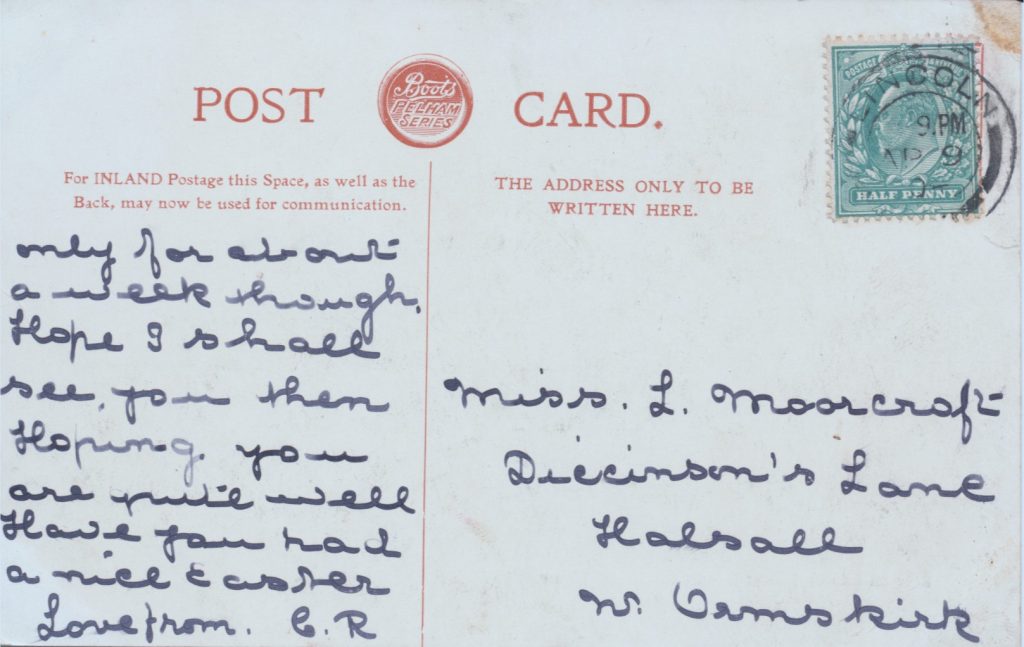 POST CARD.
Boots
PELHAM
SERIES
For INLAND Postage this Space, as well as the
Back, may now be used for communication.
only for about
a week though.
Hope I shall
see, you then
Hoping. you
are quite well
Have you had
a nice Easter
Love from. C.R
THE ADDRESS ONLY TO BE
WRITTEN HERE.
LINCOLN
9.PM
AP 9
POSTAGE
HALF PENNY
Miss. L. Moorcroft
Diccinson's Lane
Halsall
Nr. Ormskirk